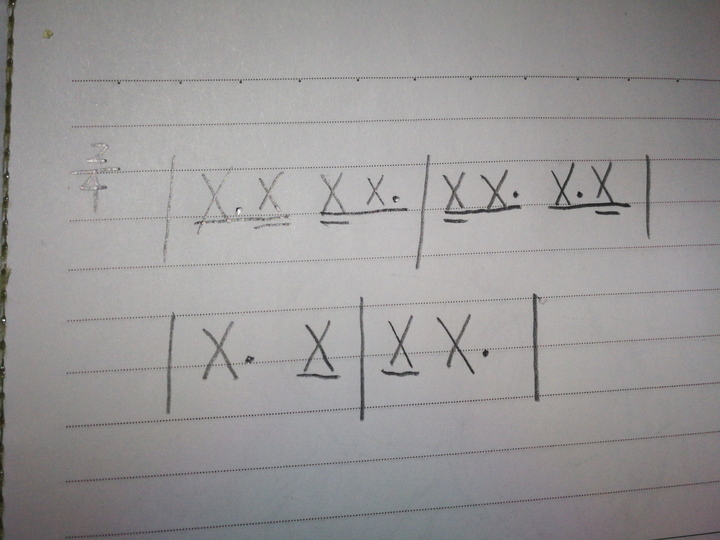 2/4 | X. X X X. | X X. X. X |
| X. X | X X. |